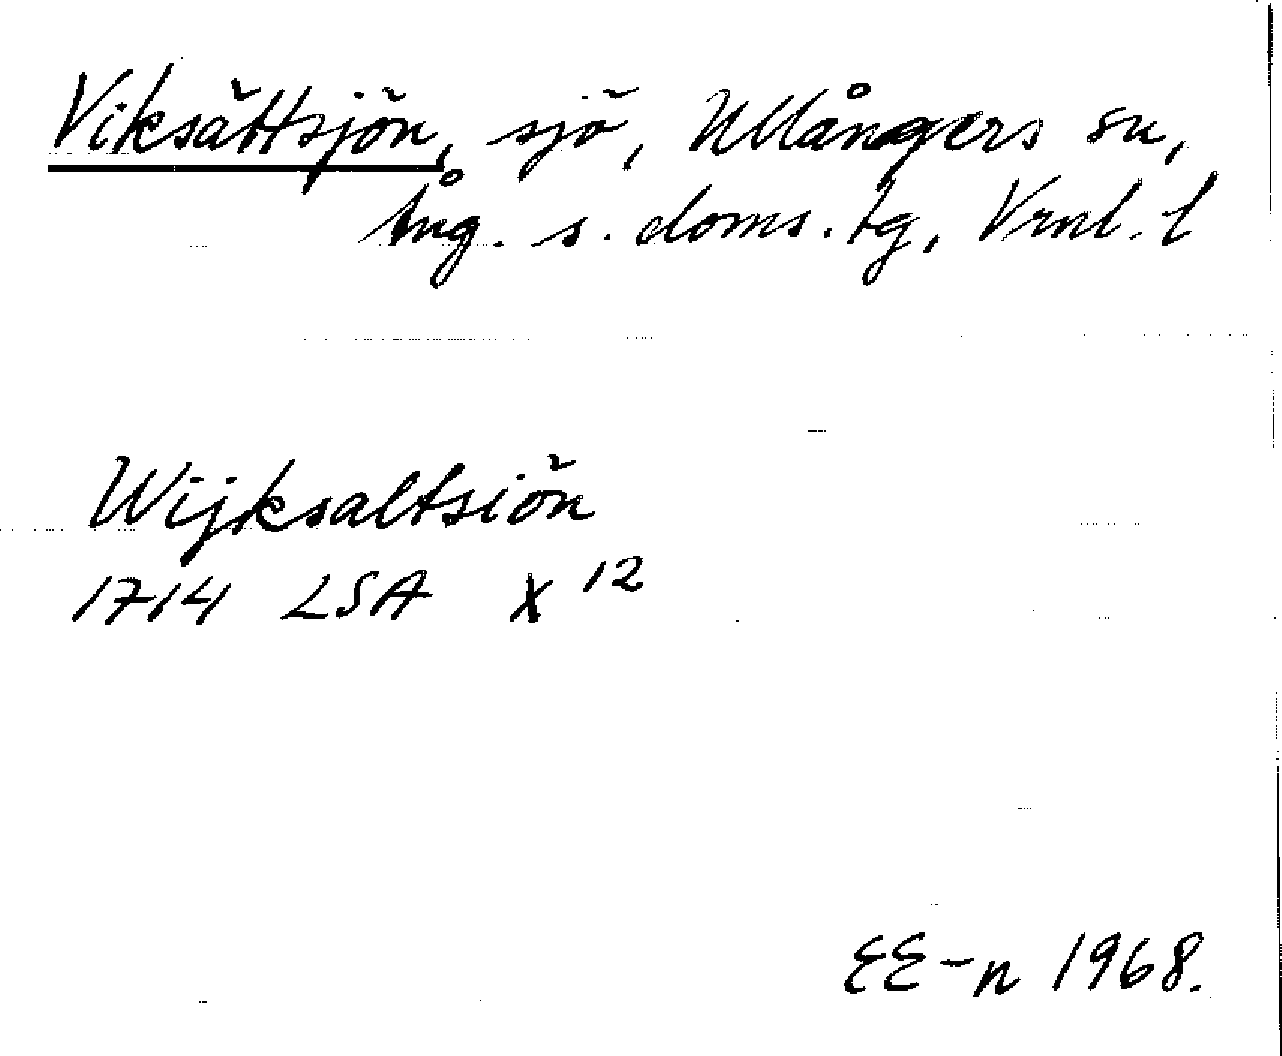 Viksättsjön, sjö, Ullångers sn,
Ång. s. doms. tg, Vrnl. l
Wijksaltsiön
1714 LSA X 12
EE-n 1968.